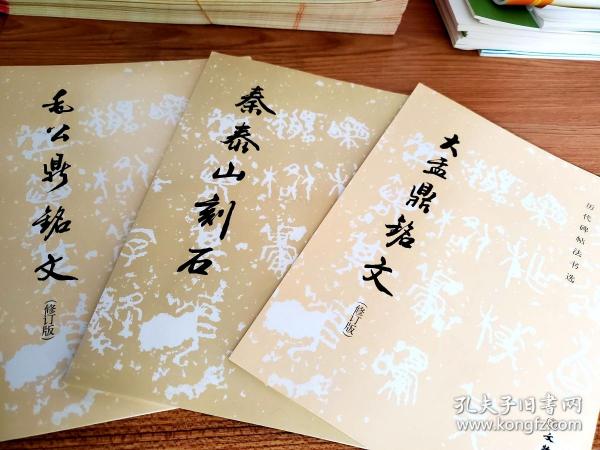 毛公鼎銘文
(修订版)
秦泰山刻石
大盂鼎銘文
(修订版)
历代碑帖法书选
文物
孔夫子旧书网
kongfz.com